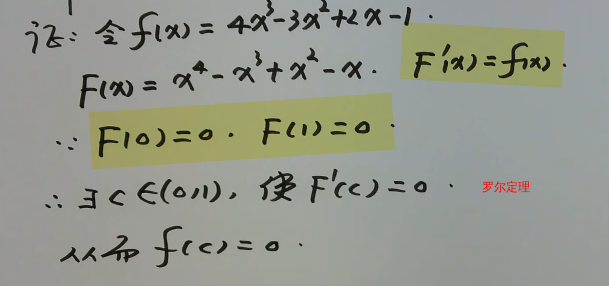 证: 令 f(x) = 4x³-3x²+2x-1.
F(x) = x⁴-x³+x²-x. F'(x) = f(x).
∵ F(0)=0. F(1)=0.
∴ ∃ c∈(0,1), 使 F'(c)=0. 罗尔定理
从而 f(c)=0.